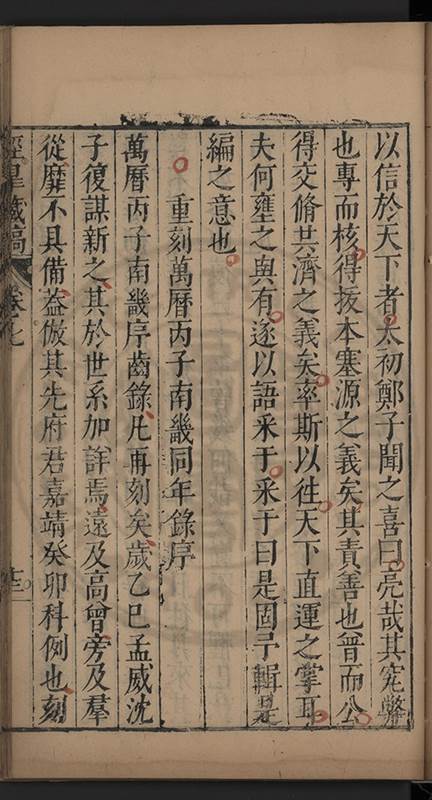 以信於天下者太初鄭子聞之喜曰亮哉其究弊
也專而核得拔本塞源之義矣其責善也曾而公
得交脩共濟之義矣率斯以徃天下直運之掌耳
夫何壅之與有遂以語釆于釆于曰是固予輯是
編之意也
重刻萬曆丙子南畿同年錄序
萬曆丙子南畿序齒錄凡再刻矣歲乙巳孟威沈
子復謀新之其於世系加詳焉遠及高曾旁及羣
從靡不具備葢倣其先府君嘉靖癸卯科例也刻
藏稿 卷七 十二